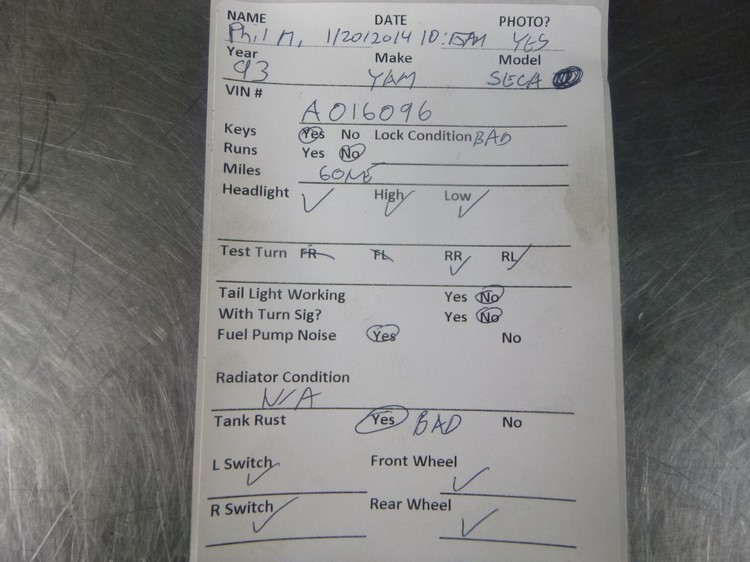 NAME DATE PHOTO?
Phil M. 1/20/2014 10:15AM YES
Year Make Model
93 YAM SECA
VIN #
A016096
Keys Yes No Lock Condition BAD
Runs Yes No
Miles GONE
Headlight High Low
Test Turn FR FL RR RL
Tail Light Working Yes No
With Turn Sig? Yes No
Fuel Pump Noise Yes No
Radiator Condition
N/A
Tank Rust Yes BAD No
L Switch Front Wheel
R Switch Rear Wheel